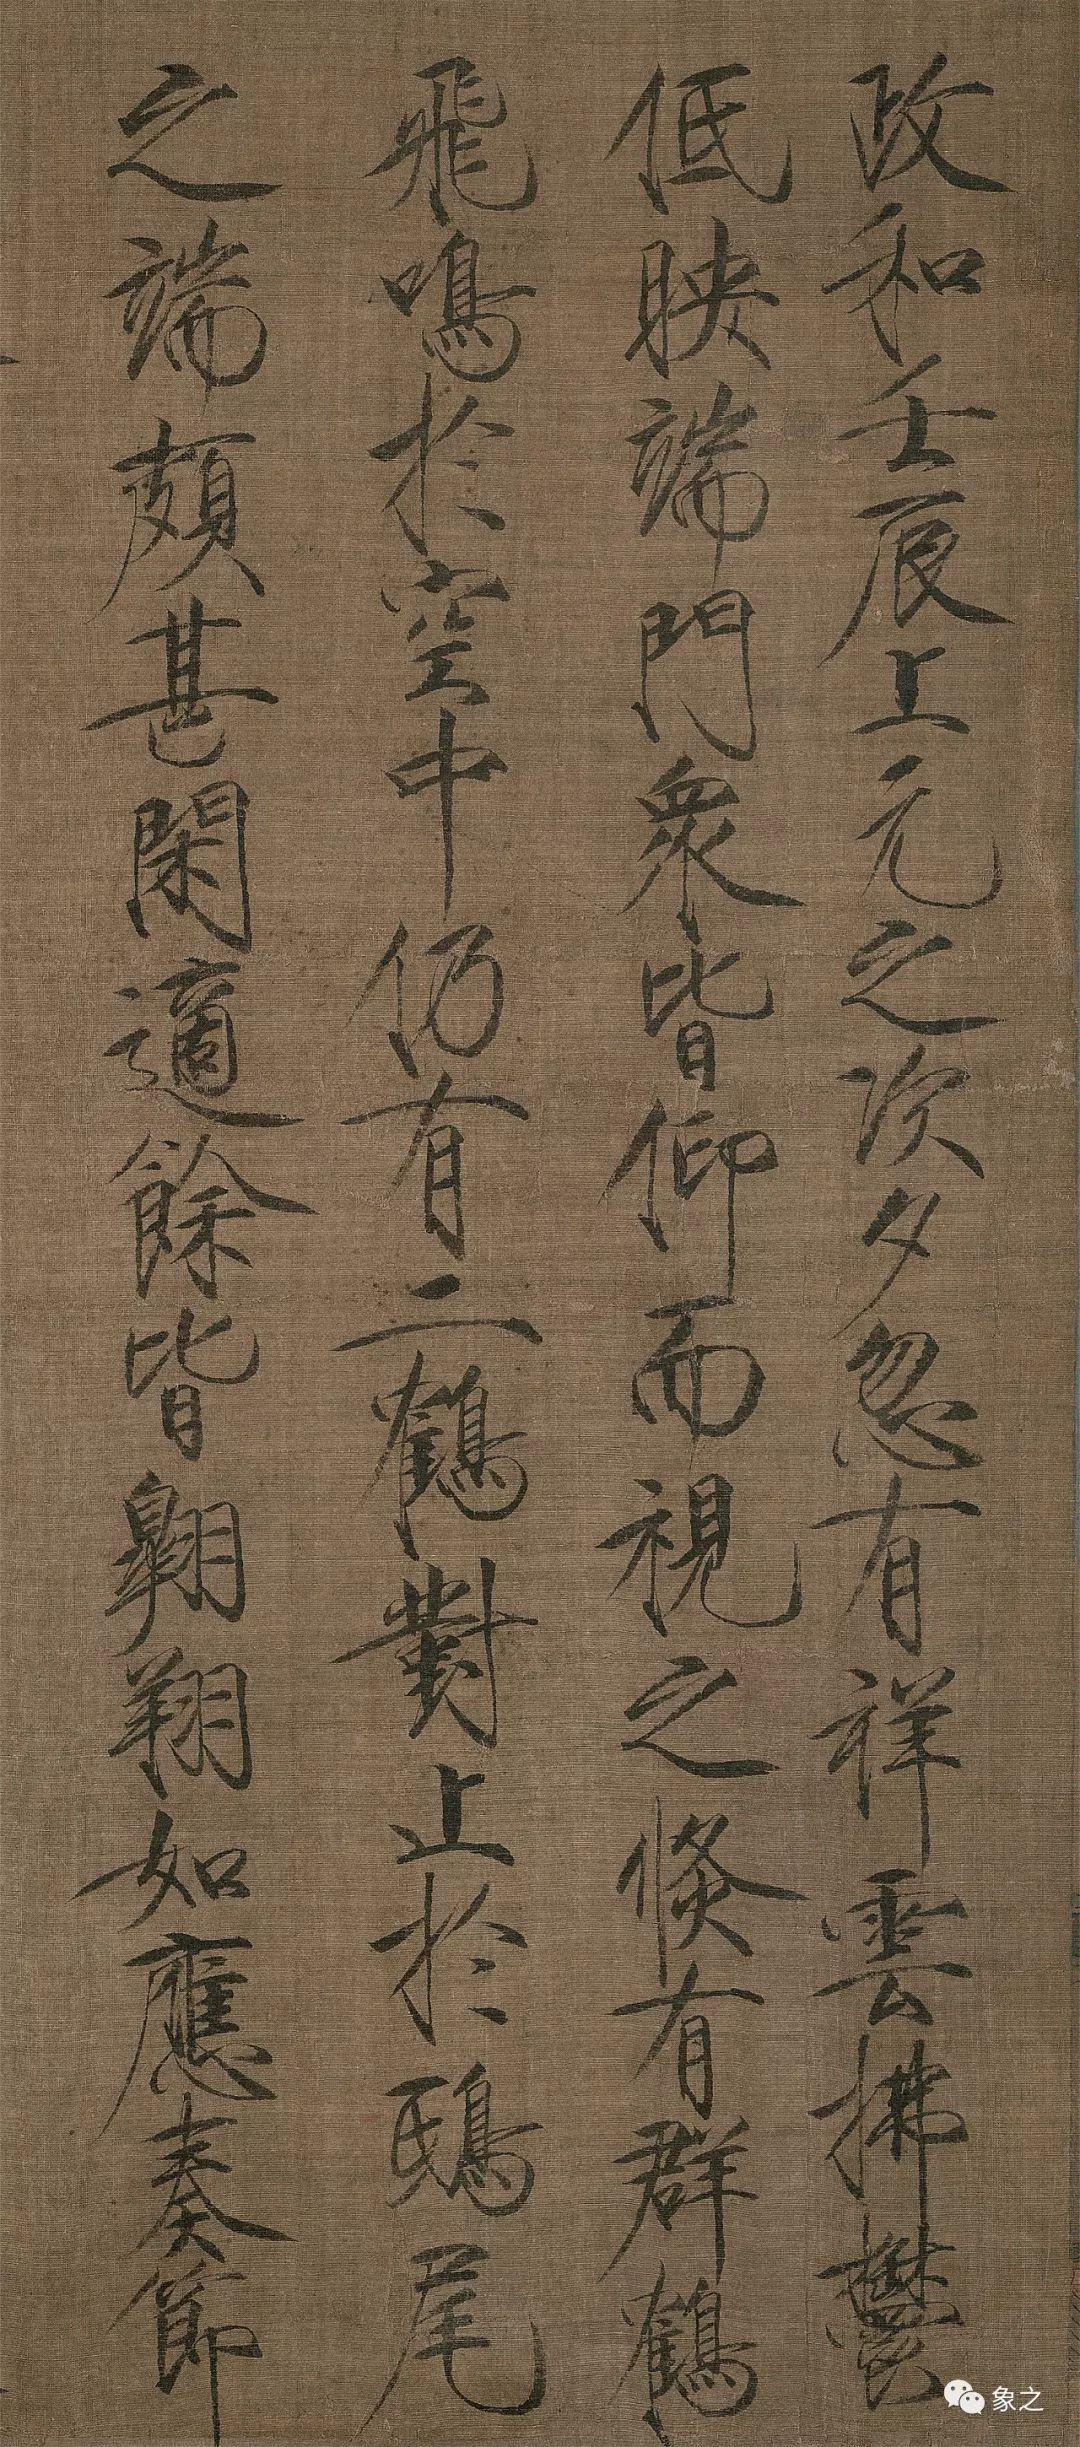 政和壬辰上元之次夕忽有祥雲拂鬱
低映端門衆皆仰而視之倏有群鶴
飛鳴於空中仍有二鶴對止於鴟尾
之端頗甚閑適餘皆翱翔如應奏節
象之